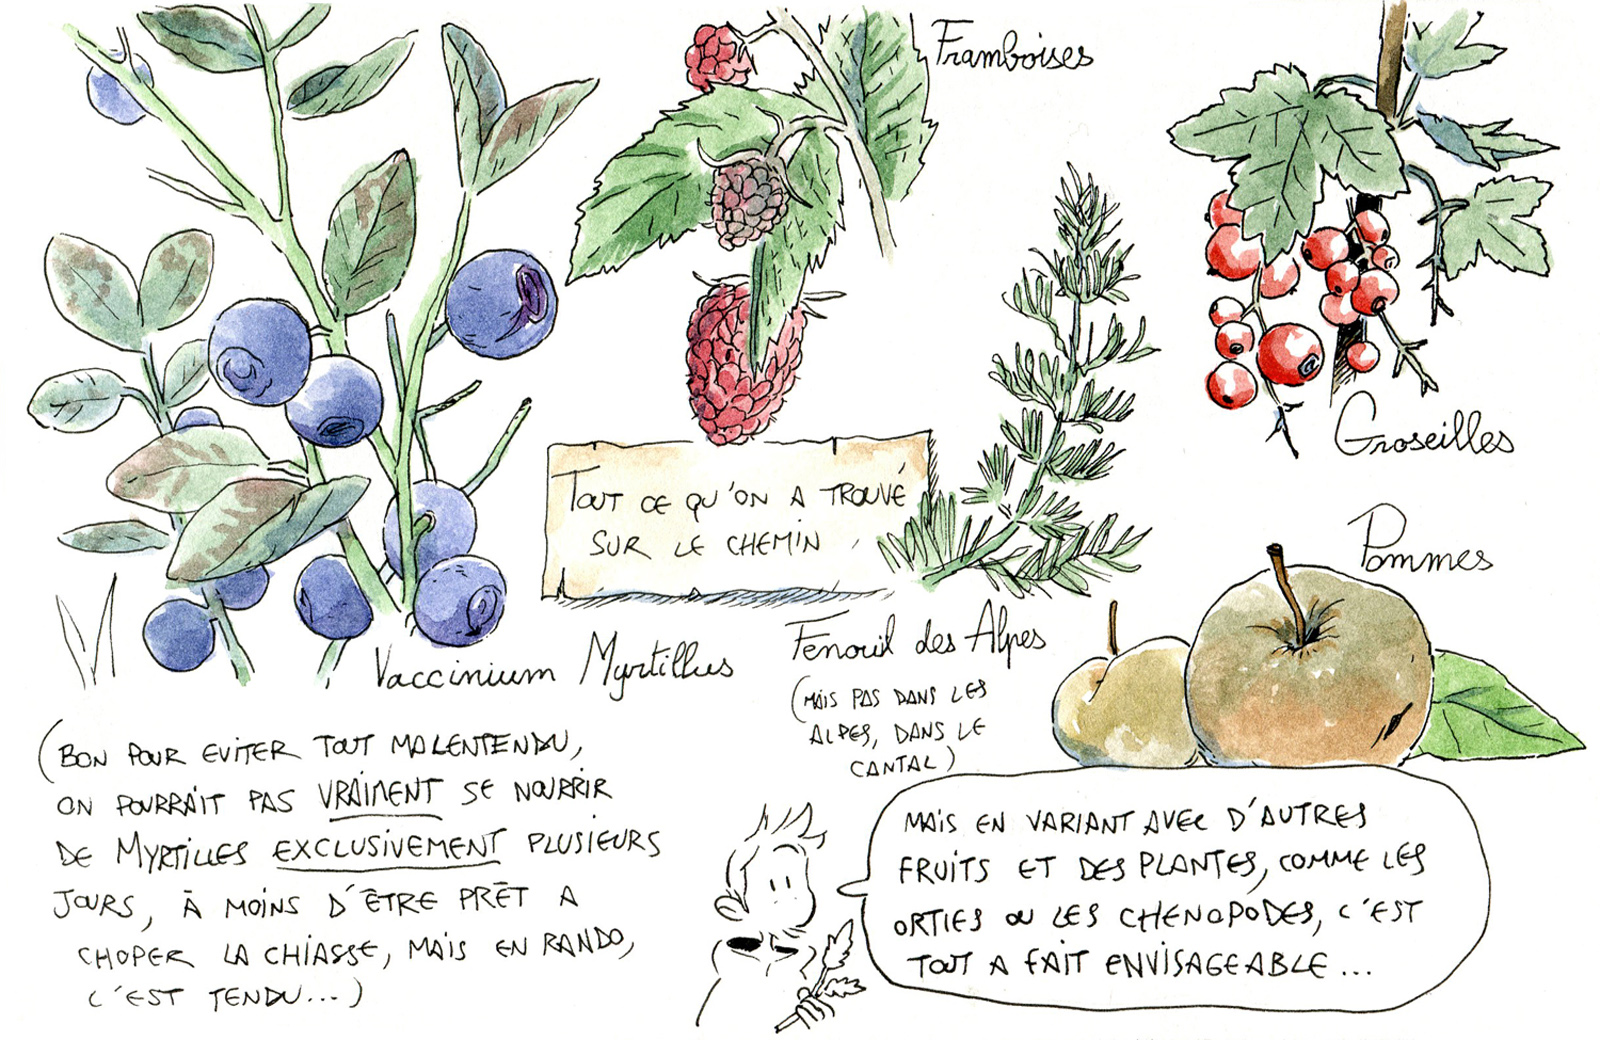 Framboises
Groseilles
TOUT CE QU'ON A TROUVÉ
SUR LE CHEMIN
Pommes
Vaccinium Myrtillus
Fenouil des Alpes
(MAIS PAS DANS LES
ALPES, DANS LE
CANTAL)
(BON POUR EVITER TOUT MALENTENDU,
ON POURRAIT PAS VRAIMENT SE NOURRIR
DE MYRTILLES EXCLUSIVEMENT PLUSIEURS
JOURS, À MOINS D'ÊTRE PRÊT A
CHOPER LA CHIASSE, MAIS EN RANDO,
C'EST TENDU...)
MAIS EN VARIANT AVEC D'AUTRES
FRUITS ET DES PLANTES, COMME LES
ORTIES OU LES CHENOPODES, C'EST
TOUT A FAIT ENVISAGEABLE...